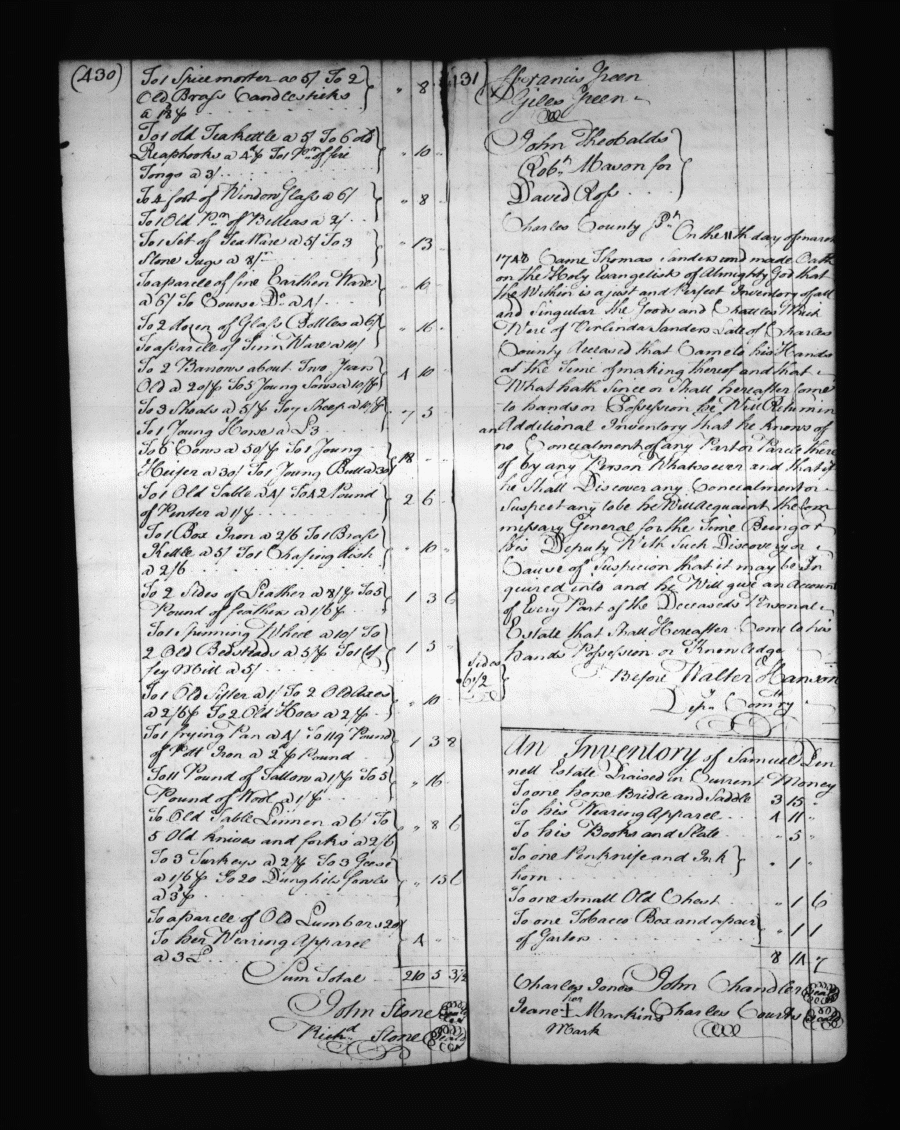 (430)
To 1 Spice morter a 5/ To 2
Old Brass Candlesticks
a 18 ⅌ . . " 8 "
To 1 old Teakettle a 5/ To 6 old
Reaphooks a 4d ⅌ To 1 Pr of fire
Tongs a 3/ . . . " 10 "
To 4 foot of Window Glass a 6/
To 1 Old Pr of Belleas a 2/ " 8 "
To 1 Set of Tea Ware a 5/ To 3
Stone Jugs a 8/ " 13
To a parcle of fine Earthen Ware
a 6/ To Course Do a 4/ " 10
To 2 dozen of Glass Bottles a 6/
To a parcle of Tinn Ware a 10/ " 16 "
To 2 Barrows about Two Years
Old a 20/⅌ To 5 Young Sows a 10/⅌ 4 10
To 3 Shoats a 5/⅌ To y Sheep a 10/⅌
To 1 Young Horse a £3 7 5
To 6 Cows a 50/⅌ To 1 Young
Heifer a 30/ To 1 Young Bull a 30/ 18 "
To 1 Old Table a 4/ To 42 Pound
of Pewter a 1/⅌ 2 6
To 1 Box Iron a 2/6 To 1 Brass
Kettle a 5/ To 1 Chafing dish
a 2/6 " 10 "
To 2 Sides of Leather a 8/⅌ To 5
Pound of feathers a 1/6 ⅌ 1 3 6
To 1 Spinning Wheel a 10/ To
2 Old Bedsteads a 5/⅌ To 1 Cof
fey Mill a 5/ 1 5 "
To 1 Old Sifter a 1/ To 2 Old axes
a 2/6 ⅌ To 2 Old Hoes a 2/⅌ " 10
To 1 frying Pan a 4/ To 119 Pound
of Pott Iron a 2d ⅌ Pound 1 3 8
To 11 Pound of Tallow a 1/⅌ To 5
Pound of Wool a 1/⅌ " 16 "
To Old Table Linnen a 6/ To
5 Old knives and forks a 2/6 " 8 6
To 3 Turkeys a 2/⅌ To 3 Geese
a 1/6 ⅌ To 20 Dunghile fowls
a 3d ⅌ " 15 6
To a parcle of Old Lumber a 20/
To her Wearing Apparel
a 3 £ 4 "
Sum Total 210 5 3 1/2
John Stone
Richd Stone
131
Francis Green
Giles Green
John Theobalds
Robt Mason for
David Ross
Charles County Ss On the 11th day of march
1748 Came Thomas Sanders and made Oath
on the Holy Evangelists of Almighty God that
the Within is a just and Perfect Inventory of all
and Singular the Goods and Chattles Which
Were of Verlinda Sanders Late of Charles
County deceased that Came to his Hands
at the Time of making thereof and that
What hath Since or Shall hereafter Come
to hands or Possession he Will Return in
an Additional Inventory that he knows of
no Concealment of any Part or Parcle there
of by any Person Whatsoever and that if
he Shall Discover any Concealment or
Suspect any to be he Will Acquaint the Com
missary General for the Time Being or
his Deputy With Such Discovery or
Cause of Suspicion that it may be In
quired into and he Will give an Account
of Every Part of the Deceaseds Personal
Estate that Shall Hereafter Come to his
hands Possession or Knowledge
Sides
6 1/2
Before Walter Hanson
Depy Comry
An Inventory of Samuel Den
nell Estate Praised in Current Money
To one horse Bridle and Saddle 3 15 "
To his Wearing Apparel 4 11 "
To his Books and Slate " 5 "
To one Penknife and Ink
horn " 1 "
To one Small Old Chest " 1 6
To one Tobacco Box and a pair
of Garters " 1 1
8 14 7
Charles Jones John Chandler
Jeane her Mankin Charles Courts
Mark